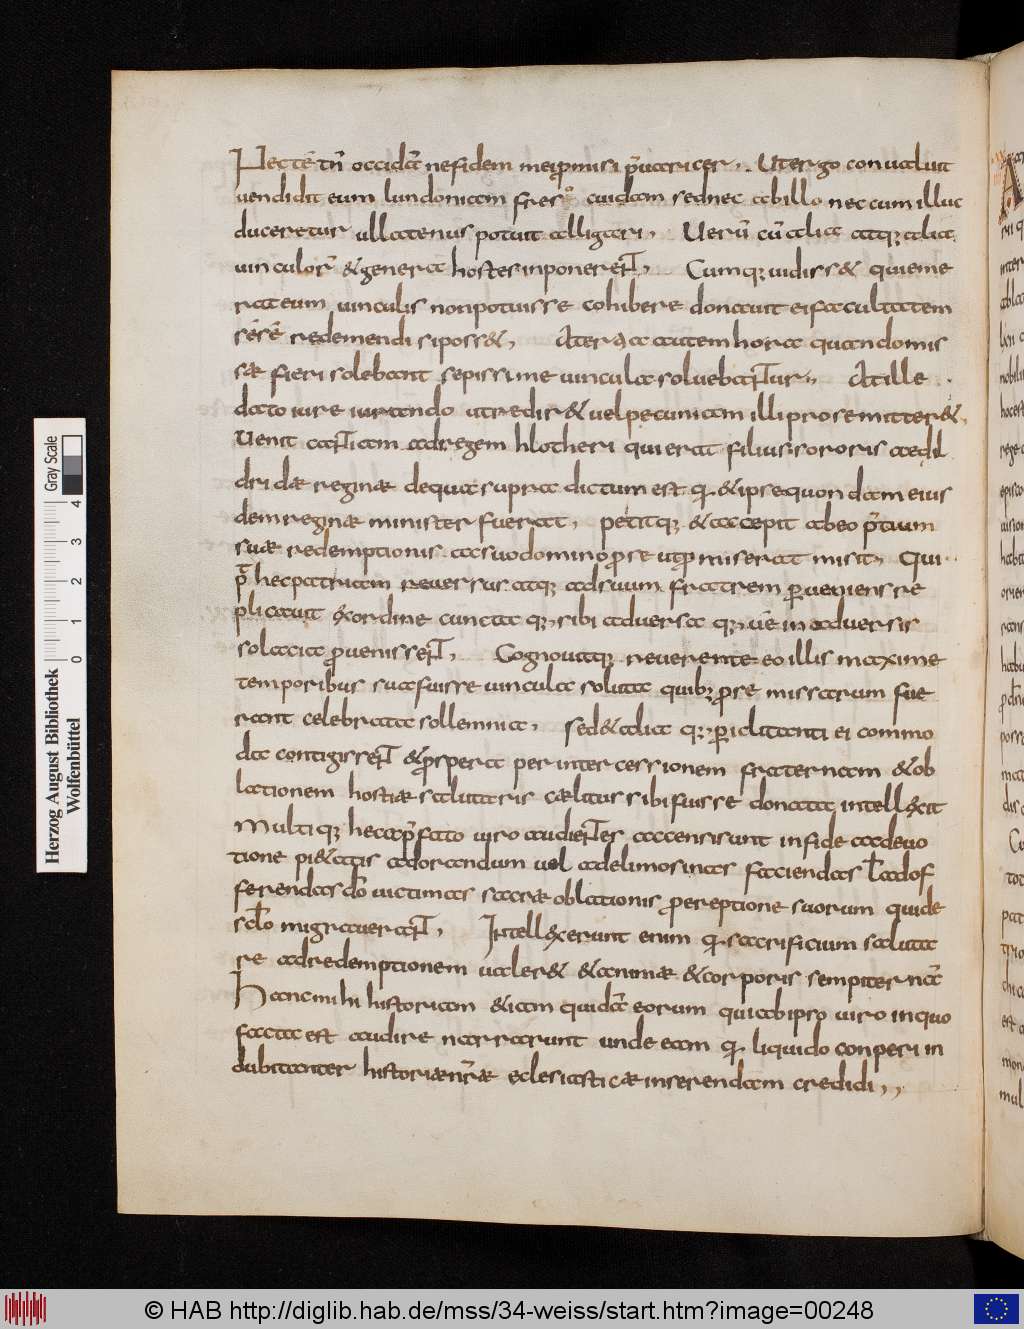 Nec te tn̄ occidā ne fidem mei p̱misi p̄uaricer. Ut ergo conualuit
uendidit eum lundoniam freso cuidam sed nec ab illo nec cum illuc
duceretur ullatenus potuit alligari. Uerū cū alia atq; alia
uinculor̄ & genera hostes inponerent, Cumq; uidiss& qui eme
rat eum uinculis non potuisse cohibere donauit ei facultatem
sēsē redemendi si poss&, A tertia autem hora quando mis
sæ fieri solebant sepissime uincula soluebantur, At ille
dato iure iurando ut redir& uel pecuniam illi pro se mitter&,
Uenit cantiam ad regem hlotheri qui erat filius sororis aedil
dridæ reginæ de qua supra dictum est q & ipse quondam eius
dem reginæ minister fuerat, petiitq; & accepit ab eo p̄tium
suæ redemptionis ac suo domino ꝓ se ut ꝓmiserat misit, Qui
p̄ hec patriam reuersus atq; ad suum fratrem ꝑueniens re
plicauit ex ordine cuncta q; sibi aduersa q; ue in aduersis
solacia ꝓuenissent, Cognouitq; referente eo illis maxime
temporibus sua fuisse uincula soluta quib; ꝓ se missarum fue
rant celebrata sollemnia, sed & alia q; ꝑiclitanti ei commo
da contigissent & ꝓspera per intercessionem fraternam & ob
lationem hostiæ salutaris cælitus sibi fuisse donata intellexit
Multiq; hec a p̄fato uiro audientes accensi sunt in fide ac deuo
tione pi&atis ad orandum uel ad elimosinas faciendas ł ad of
ferendas dō uictimas sacræ oblationis ꝓ ereptione suorum qui de
sclo migrauerant, Intellexerunt enim q sacrificium saluta
re ad redemptionem ualer& & animæ & corporis sempiternā
Hanc mihi historiam &iam quidā eorum qui ab ipso uiro in quo
facta est audire narrarunt unde eam q liquido conperi in
dubitanter historiæ nr̄æ eclesiasticæ inserendam credidi,,
Herzog August Bibliothek
Wolfenbüttel
Gray Scale
0 1 2 3 4
© HAB http://diglib.hab.de/mss/34-weiss/start.htm?image=00248